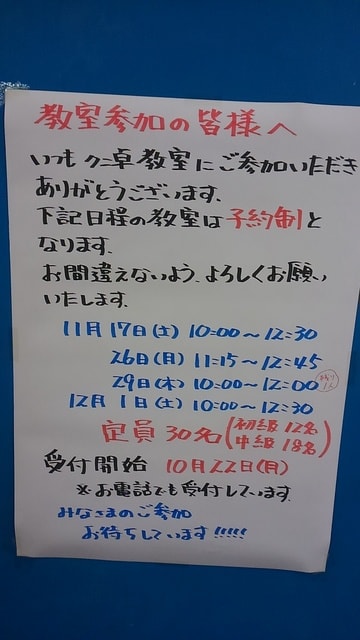 教室参加の皆様へ
いつもクニ卓教室にご参加いただき
ありがとうございます。
下記日程の教室は予約制と
なります。
お間違えないよう、よろしくお願い
いたします。
11月17日(土) 10:00〜12:30
26日(月) 11:15〜12:45
29日(木) 10:00〜12:00
12月1日(土) 10:00〜12:30
定員 30名(初級 12名
中級 18名)
受付開始 10月22日(月)
※お電話でも受付しています。
みなさまのご参加
お待ちしています!!!!!